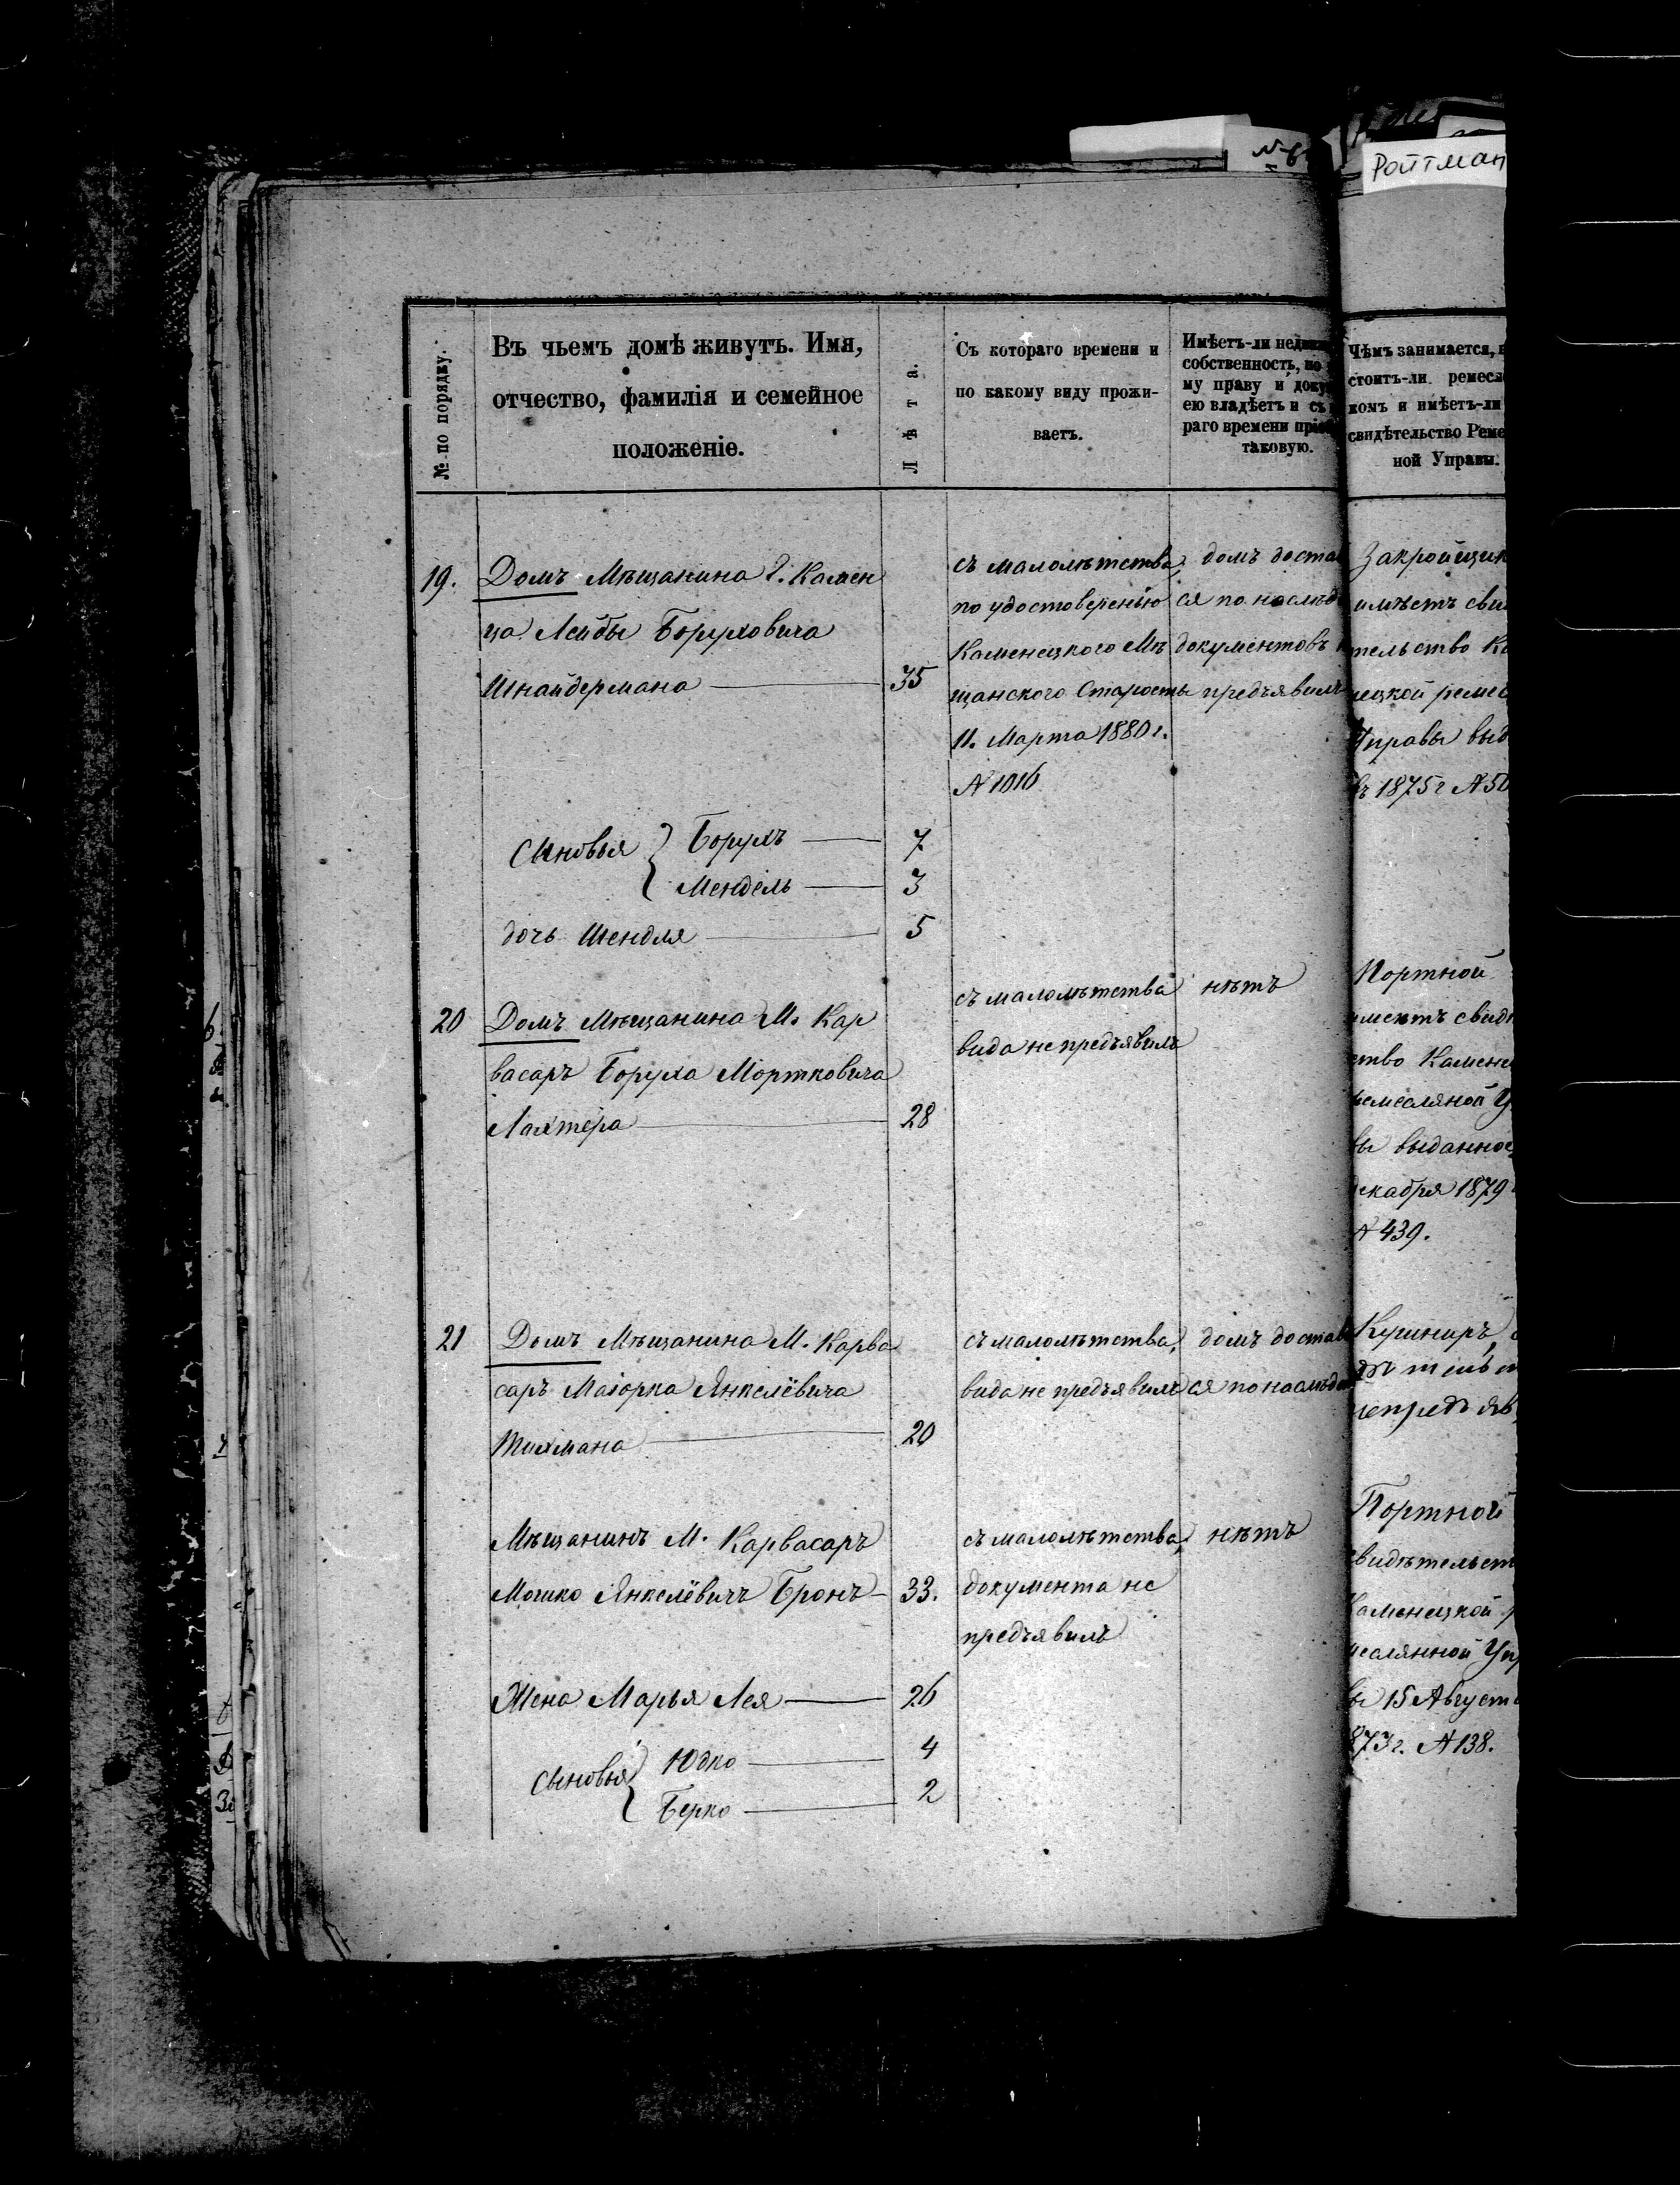 № 6
Ройтман
№ по порядку.
Въ чьемъ домѣ живутъ. Имя,
отчество, фамилія и семейное
положеніе.
Лѣта.
Съ котораго времени и
по какому виду прожи-
ваетъ.
Имѣетъ-ли недви
собственность, по
му праву и доку
ею владѣетъ и съ
раго времени пріоб
таковую.
Чѣмъ занимается,
стоитъ-ли ремесл
комъ и имѣетъ-ли
свидѣтельство Реме
ной Управы.
19. Домъ Мѣщанина г. Камен
ца Лейбы Боруховича
Шнайдермана 35
съ малолѣтства,
по удостоверенію
Каменецкого Мѣ
щанского Старосты
11. Марта 1880 г.
№ 1016
домъ достал
ся по наслѣд
документовъ н
предъявилъ
Закройщик
имѣетъ сви
тельство Ка
нецкой ремес
Управы выд
въ 1875 г № 50
Сыновья { Борухъ 7
Мендель 3
дочь Шендля 5
20 Домъ Мѣщанина М. Кар
васаръ Боруха Мортковича
Лахтера 28
съ малолѣтства
вида не предъявилъ
нѣтъ
Портной
имеетъ свидѣ
ство Камене
емесляной У
вы выданное
екабря 1879
№ 439.
21 Домъ Мѣщанина М. Карва
саръ Маіорка Янкелёвича
Тихмана 20
съ малолѣтства,
вида не предъявилъ
домъ достал
ся по наслѣд
Кушниръ,
дѣтельст
непредъяв
Мѣщанинъ М. Карвасаръ
Мошко Янкелёвичъ Бронъ 33.
съ малолѣтства,
документа не
предъявилъ
нѣтъ
Портной
видѣтельст
Каменецкой р
месляной Уп
вы 15 Август
873 г. № 138.
Жена Марья Лея 26
сыновья { Юдко 4
Берко 2